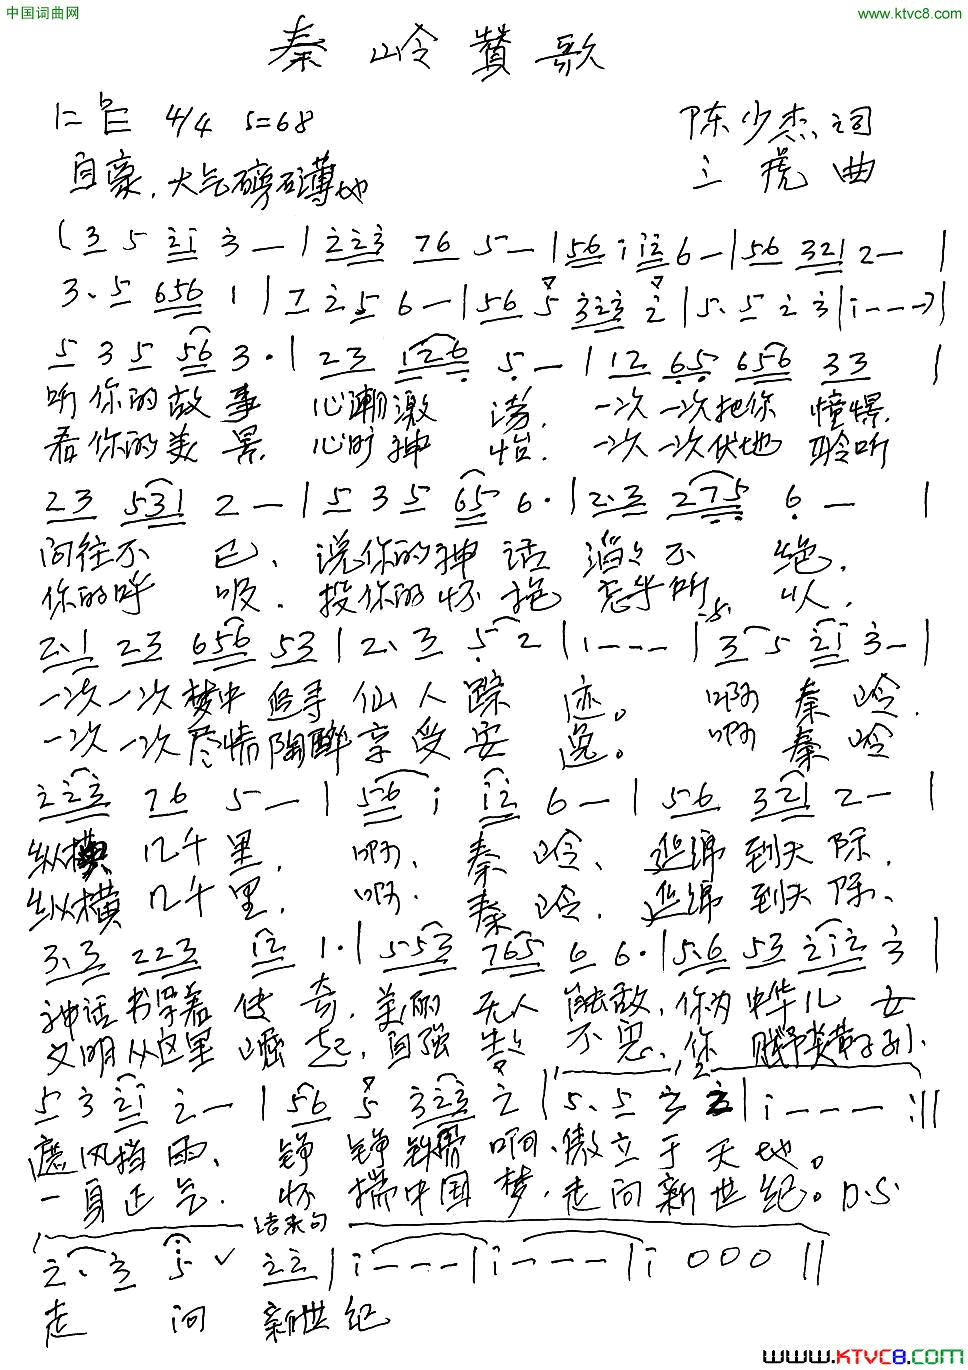 中国词曲网
www.ktvc8.com
秦岭赞歌
1=E 4/4 5=68
陈少杰词
自豪.大气磅礴地
三虎曲
(3 5 2i 3 — | 223 76 5 — | 56 i i2 6 — | 56 321 2 — |
3. 5 656 1 | 7 2 5 6 — | 56 5 323 2 | 5. 5 2 3 | i - - - ) |
5 3 5 56 3 . | 23 126 5 — | 12 65 656 33 |
听你的故事 心潮激荡. 一次一次把你憧憬.
看你的美景. 心旷神怡. 一次一次伏地聆听
23 531 2 — | 5 3 5 65 6 . | 2.3 275 6 — |
向往不已、说你的神话滔々不绝.
你的呼吸.投你的怀抱
2.1 23 656 53 | 2. 3 5 2 | 1 - - - | 3 5 2i 3 — |
一次一次梦中追寻仙人踪迹。啊秦岭.
一次一次尽情陶醉享受安逸。啊秦岭
223 76 5 — | 56 i i2 6 — | 56 321 2 — |
纵横几千里. 啊.秦岭、延绵到天际.
纵横几千里. 啊.秦岭.延绵到天际、
3.3 223 i2 1 . | 553 765 6 6 . | 5.6 53 2i2 3 |
神话书写着传奇.美丽无人能敌.你为中华儿女
文明从这里崛起.自强不息.你
5 3 2i 2 — | 56 5 323 2 | 5. 5 3 2 | i - - - :||
遮风挡雨、铮铮铁骨啊.傲立于天地。
一身正气.怀揣中国梦.走向新世纪。D.S.
结束句
2. 3 5 ∨ 22 | i - - - | i - - - | i 0 0 0 ||
走向新世纪
www.KTVC8.com